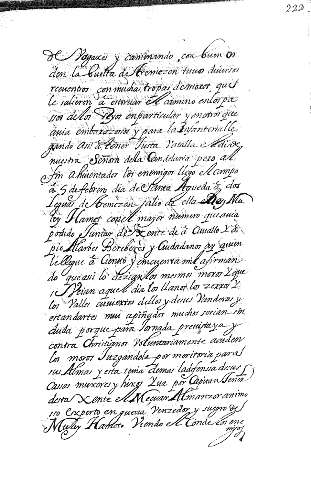 220
de Nogaxes y caminando con buen or
den la buelta de tremezen tuuo diuersos
recuentros con muchas tropas de moros que
le salieron a estoruar el camino en los pa
sos de los Rios en particular y en otros que
auia embarazosos y para la Infanteria lle
gando asi a tener Justa Batalla el dia de
nuestra Señora de la Candelaria pero al
fin ahuientados los enemigos llego el campo
a 5 de febrero dia de Santa Agueda a dos
leguas de tremezen salio de ella Rey Mu
ley Hamet con el mayor numero que auia
podido Juntar de xente de a Cauallo y de
pie Alarbes Bereberes y Ciudadanos ay quien
le llegue a ciento y cinquenta mil afirman
do que asi lo dezian los mesmos moros
Vian aquel dia los llanos los zerros y
los Valles cubiertos dellos y de sus Vanderas y
estandartes mui apiñados muchos serian sin
duda porque para Jornada preuista ya y
contra Christianos Voluntariamente acuden
los moros Juzgandola por meritoria para
sus Almas y esta tenia demas la defensa de sus
Cassas mugeres y hixos Era por Capitan General
desta xente el Meguar Almanzor animo
so Experto en guerra Venzedor y suegro de
Muley Hamet Viendo el Conde los ene
migos